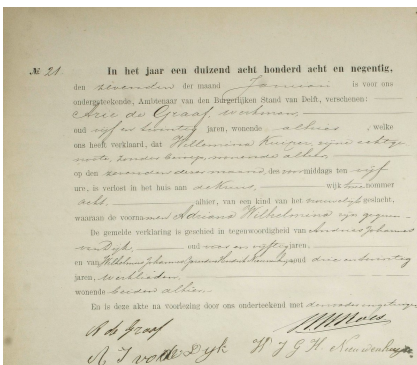 № 21. In het jaar een duizend acht honderd acht en negentig,
den zevenden der maand Januari is voor ons
ondergeteekende, Ambtenaar van den Burgerlijken Stand van Delft, verschenen:
Arie de Graaf, werkman,
oud vijf en twintig jaren, wonende alhier, welke
ons heeft verklaard, dat Willemina Kuiper, zijne echtge-
noote, zonder beroep, wonende alhier
op den zevenden dezer maand, des voormiddags ten vijf
ure, is verlost in het huis aan wijk twee nommer
acht, alhier, van een kind van het vrouwelijk geslacht,
waaraan de voornamen Adriana Wilhelmina zijn gegeven
De gemelde verklaring is geschied in tegenwoordigheid van Andries Johannes
van Dyk, oud een en vijftig jaren,
en van Wilhelmus Johannes oud drie en twintig
jaren, werklieden,
wonende beiden alhier.
En is deze akte na voorlezing door ons onderteekend met
A de Graaf
A. J van Dyk W J G H Nieuwenhuijse